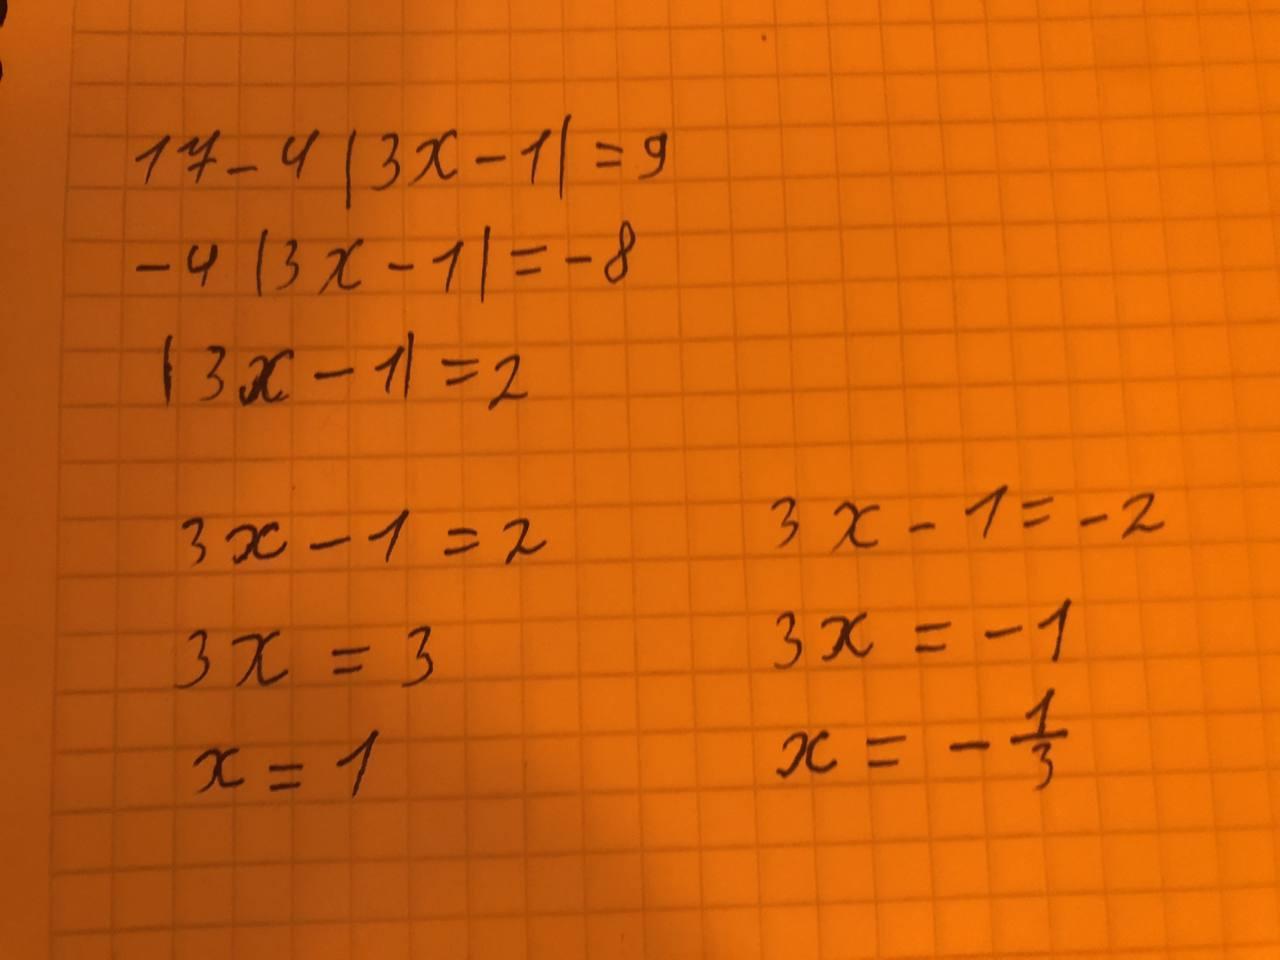 17-4|3x-1|=9
-4|3x-1|=-8
|3x-1|=2
3x-1=2
3x=3
x=1
3x-1=-2
3x=-1
x=-1/3